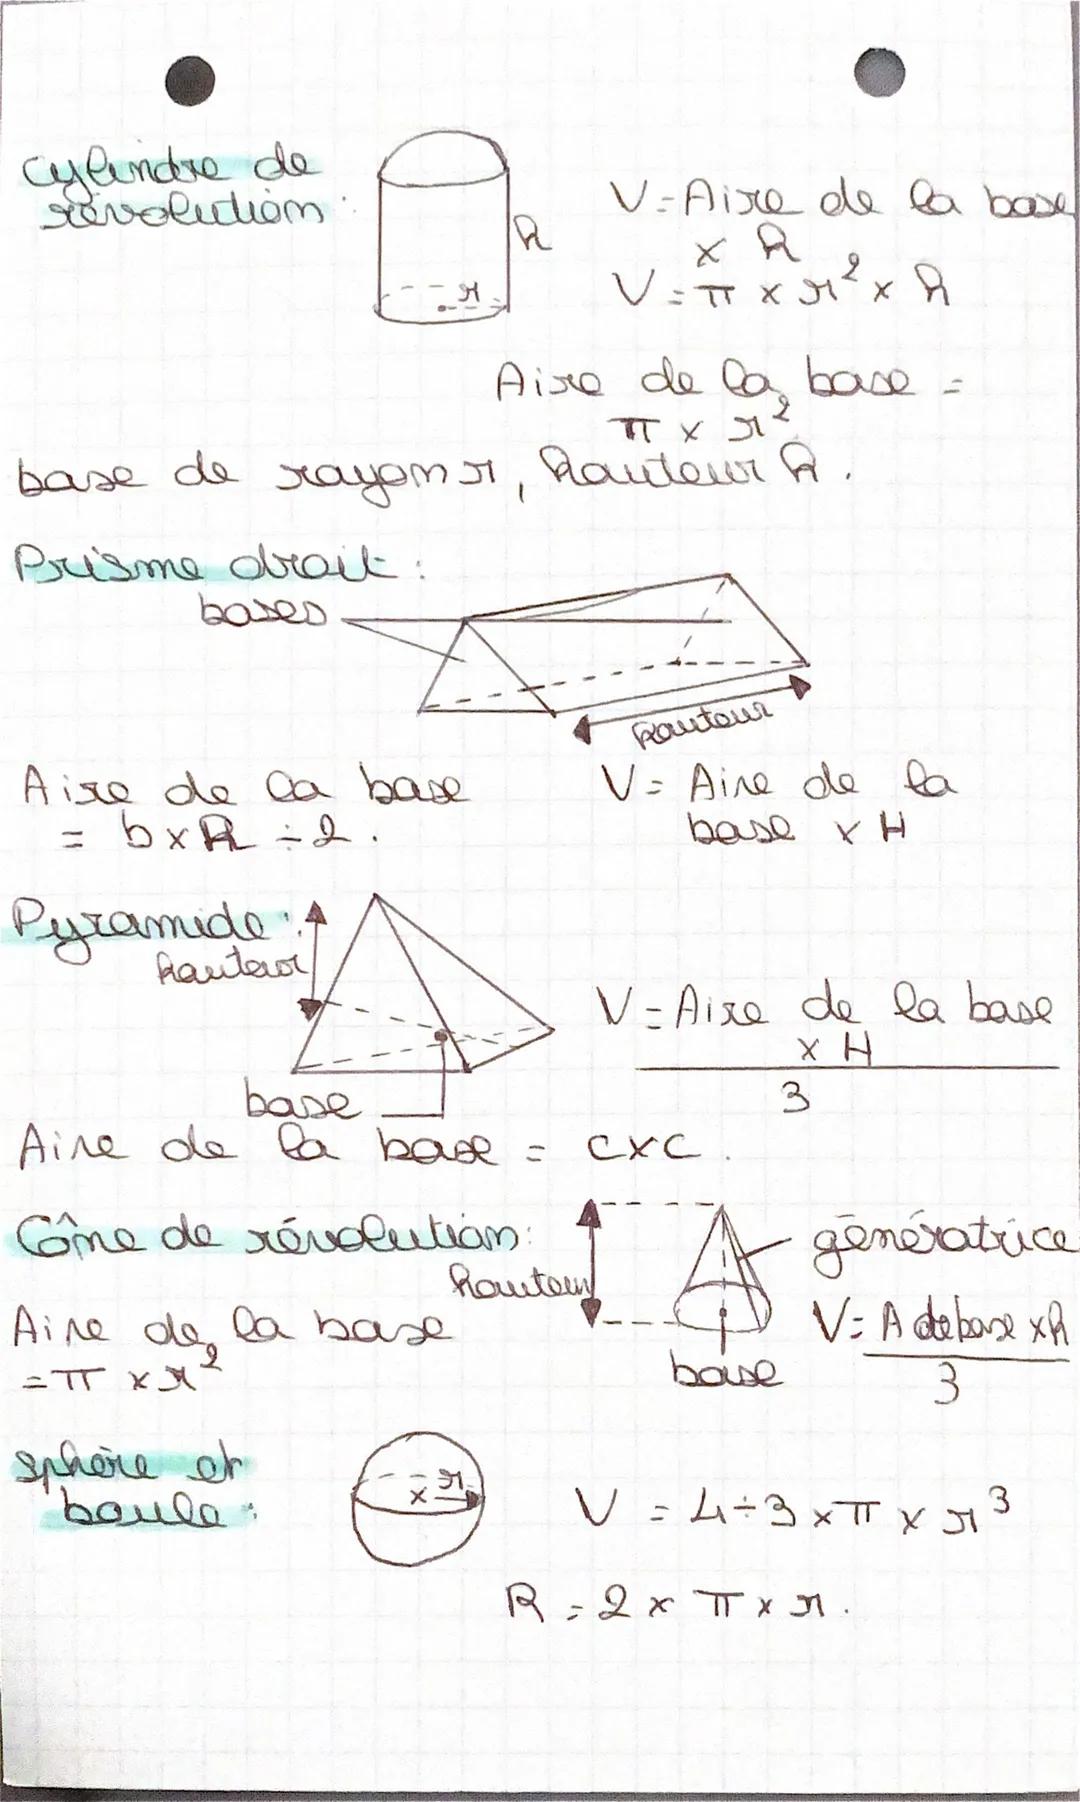 Cylindre de
révolution :
h
r
V = Aire de la base
x h
V = π x r² x h
Aire de la base =
π x r²
base de rayon r, hauteur h.
Prisme droit :
bases
hauteur
Aire de la base
= b x h ÷ 2.
V = Aire de la
base x H
Pyramide :
hauteur
base
V = Aire de la base
x H
3
Aire de la base = c x c.
Cône de révolution :
hauteur
génératrice
base
Aire de la base
= π x r²
V = A de base x h
3
sphère et
boule :
r
V = 4 ÷ 3 x π x r³
R = 2 x π x r.